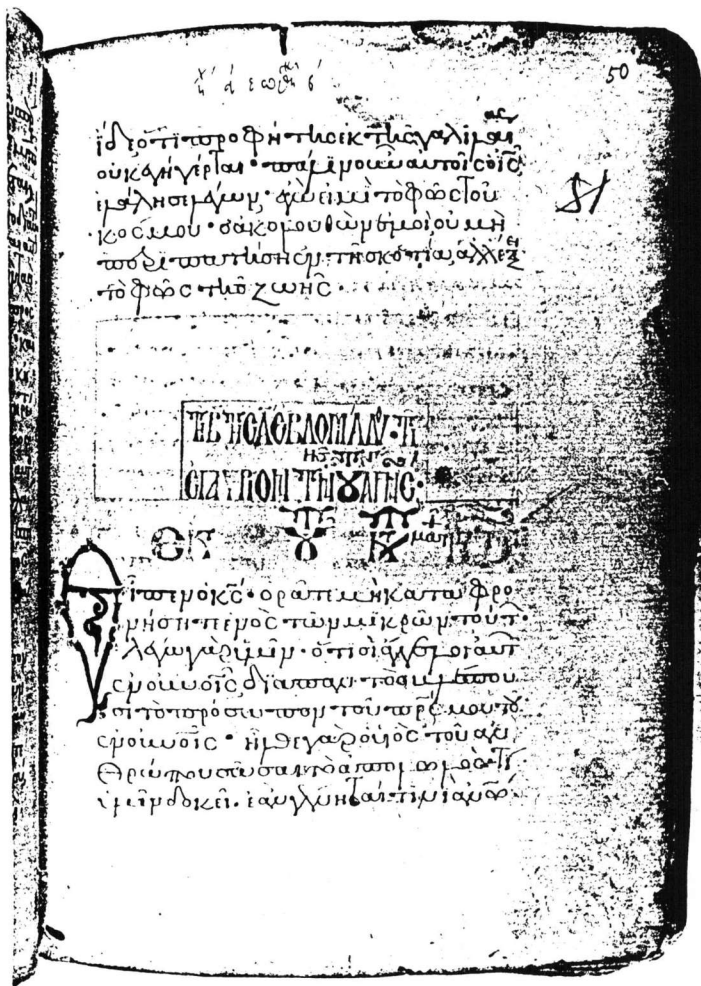 50
ἴδε ὅτι προφήτης ἐκ τῆς γαλιλαίας
οὐκ ἐγήγερται· πάλιν οὖν αὐτοῖς ὁ ἰς
ἐλάλησε λέγων· ἐγώ εἰμι τὸ φῶς τοῦ
κόσμου· ὁ ἀκολουθῶν ἐμοὶ οὐ μὴ
περιπατήσῃ ἐν τῇ σκοτίᾳ, ἀλλ' ἕξει
τὸ φῶς τῆς ζωῆς·
81
ΤΗ Β ΤΗΣ ΕΒΔΟΜΑΔΟΣ
ΕΠΑΥΡΙΟΝ ΤΗΣ ΑΓΙΑΣ
ΕΚ ΤΟΥ ΚΑΤΑ
Εἶπεν ὁ κς· ὁρᾶτε μὴ καταφρο
νήσητε ἑνὸς τῶν μικρῶν τούτων·
λέγω γὰρ ὑμῖν· ὅτι οἱ ἄγγελοι αὐτῶν
ἐν οὐνοῖς διὰ παντὸς βλέπου
σι τὸ πρόσωπον τοῦ πρς μου τοῦ
ἐν οὐνοῖς· ἦλθε γὰρ ὁ υἱὸς τοῦ ἀν
θρώπου σῶσαι τὸ ἀπολωλός· τί
ὑμῖν δοκεῖ· ἐὰν γένηται τινὶ ἀνω